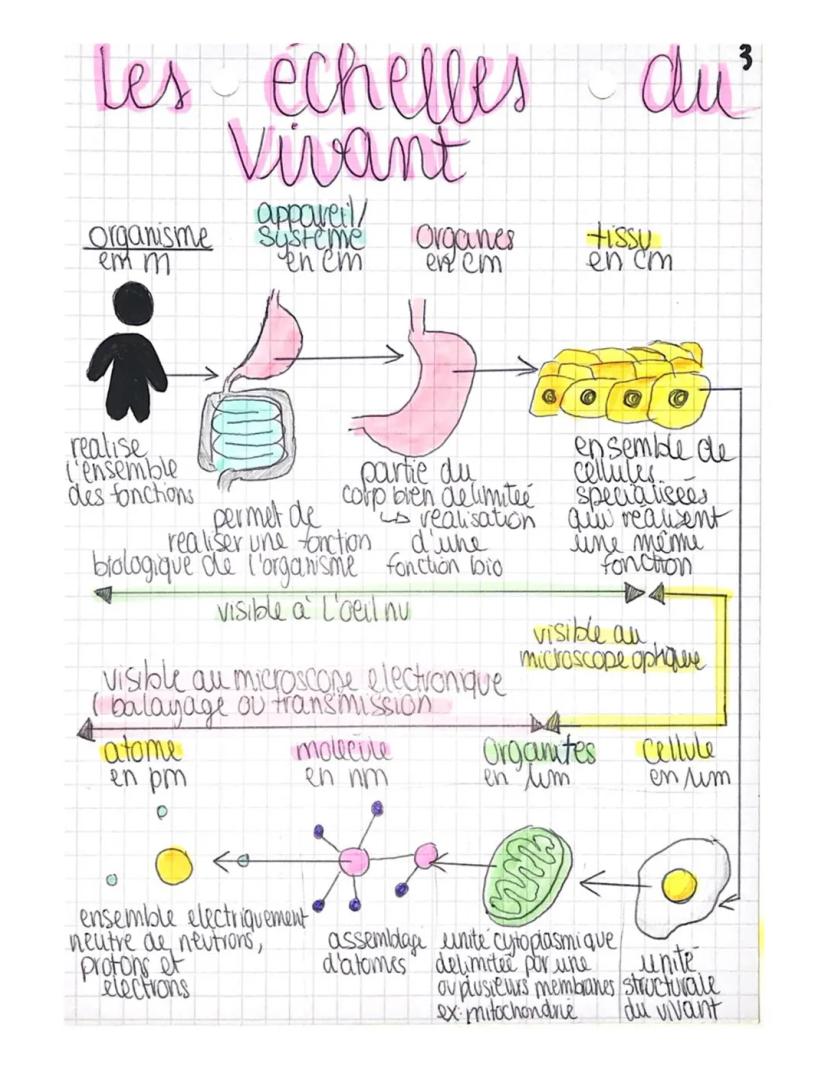 3
Les échelles du
Vivant
organisme
em m
appareil/
système
en cm
organes
en cm
tissu
en cm
realise
l'ensemble
des fonctions
permet de
realiser une fonction
biologique de l'organisme
partie du
corp bien delimiteé
↳ réalisation
d'une
fonction bio
ensemble de
cellules
specialisées
qui réalisent
une même
fonction
visible à l'oeil nu
visible au
microscope optique
visible au microscope electronique
( balayage ou transmission
atome
en pm
molécule
en nm
Organites
en µm
cellule
en µm
ensemble electriquement
neutre de neutrons,
protons et
electrons
assemblage
d'atomes
unité cytoplasmique
delimiteé par une
ou plusieurs membranes
ex: mitochondrie
unité
structurale
du vivant